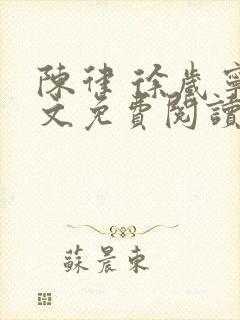 陳律 徐歲寧
文免費閱讀
蘇晨東